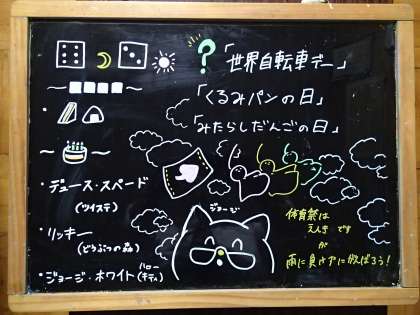 ?
「世界自転車デー」
「くるみパンの日」
「みたらしだんごの日」
・デュース・スペード
(ツイステ)
・リッキー
(どうぶつの森)
・ジョージ・ホワイト(ハローキティ)
ジョージ
体育祭は
えんき です
が
雨に負けずにがんばろう!